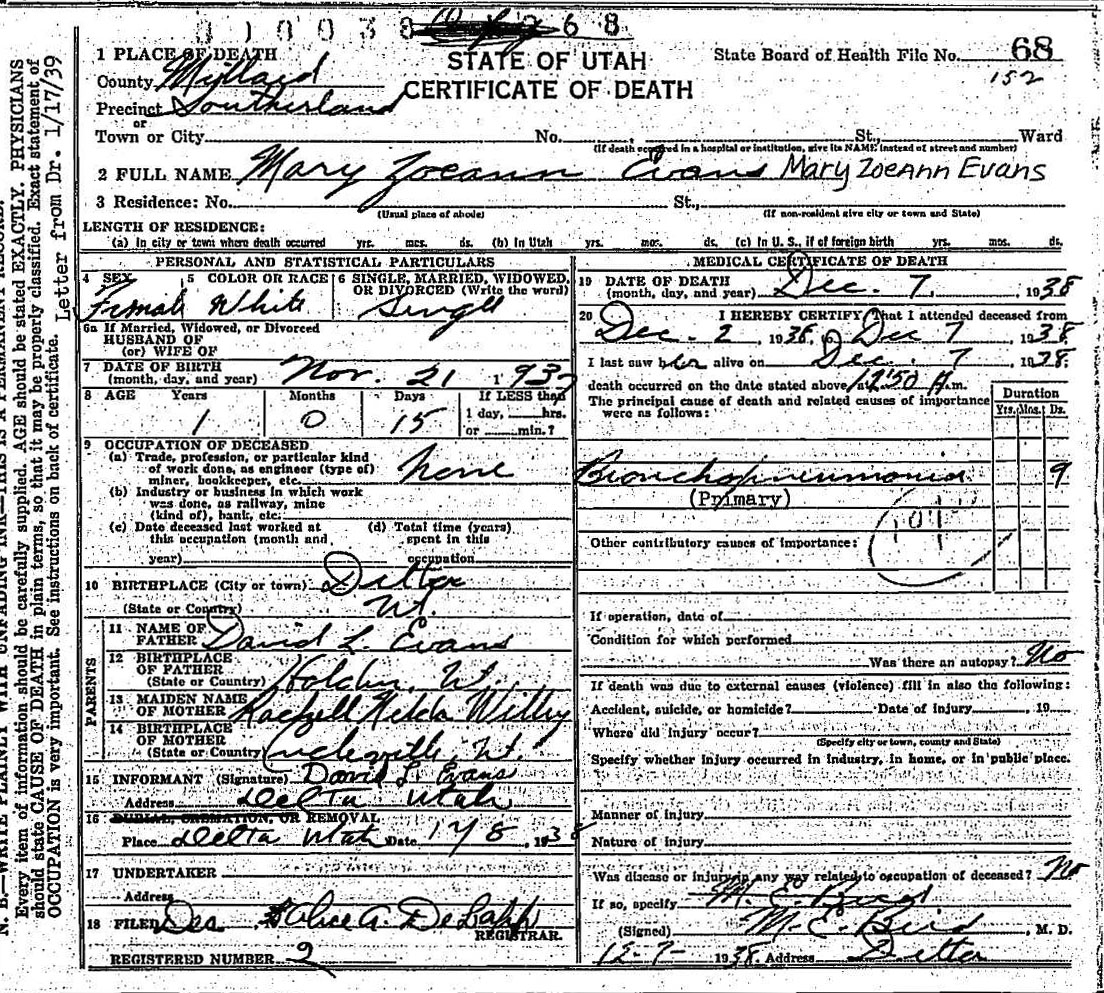 010038 68
1 PLACE OF DEATH
STATE OF UTAH
State Board of Health File No. 68
County Myllard
CERTIFICATE OF DEATH
152
Precinct Southerland
or
Town or City No. St., Ward
(If death occurred in a hospital or institution, give its NAME instead of street and number)
2 FULL NAME Mary Zoeann Evans Mary Zoeann Evans
3 Residence: No. St.,
(Usual place of abode) (If non-resident give city or town and State)
LENGTH OF RESIDENCE:
(a) In city or town where death occurred yrs. mos. ds. (b) In Utah yrs. mos. ds. (c) In U. S., if of foreign birth yrs. mos. ds.
PERSONAL AND STATISTICAL PARTICULARS
4 SEX 5 COLOR OR RACE 6 SINGLE, MARRIED, WIDOWED, OR DIVORCED (Write the word)
Femal White Singl
6a If Married, Widowed, or Divorced
HUSBAND OF
(or) WIFE OF
7 DATE OF BIRTH
(month, day, and year) Nov. 21 1937
8 AGE Years Months Days If LESS than
1 0 15 1 day, hrs.
or min.?
9 OCCUPATION OF DECEASED
(a) Trade, profession, or particular kind
of work done, as engineer (type of)
miner, bookkeeper, etc. none
(b) Industry or business in which work
was done, as railway, mine
(kind of), bank, etc.
(c) Date deceased last worked at (d) Total time (years)
this occupation (month and spent in this
year) occupation
10 BIRTHPLACE (City or town) Delta
(State or Country) Ut.
PARENTS
11 NAME OF
FATHER David L. Evans
12 BIRTHPLACE
OF FATHER
(State or Country) Holden, Ut.
13 MAIDEN NAME
OF MOTHER
14 BIRTHPLACE
OF MOTHER
(State or Country) Ut.
15 INFORMANT (Signature) David L. Evans
Address Delta Utah
16 BURIAL, CREMATION, OR REMOVAL
Place Delta Utah Date 12/8, 1938
17 UNDERTAKER
Address
18 FILED Dec 8 Alice A. DeLapp
REGISTRAR.
REGISTERED NUMBER 2
MEDICAL CERTIFICATE OF DEATH
19 DATE OF DEATH
(month, day, and year) Dec. 7, 1938
20 I HEREBY CERTIFY, That I attended deceased from
Dec. 2, 1938, to Dec 7, 1938.
I last saw her alive on Dec. 7, 1938.
death occurred on the date stated above, at 12:50 A.m.
The principal cause of death and related causes of importance
were as follows:
Duration
Yrs. Mos. Ds.
Bronchopneumonia 9
(Primary)
107
Other contributory causes of importance:
If operation, date of
Condition for which performed
Was there an autopsy? No
If death was due to external causes (violence) fill in also the following:
Accident, suicide, or homicide? Date of injury 19
Where did injury occur?
(Specify city or town, county and State)
Specify whether injury occurred in industry, in home, or in public place.
Manner of injury
Nature of injury
Was disease or injury in any way related to occupation of deceased? No
If so, specify M. E. Bird
(Signed) M. E. Bird, M. D.
12-7- 1938. Address Delta
N. B.—WRITE PLAINLY WITH UNFADING INK—THIS IS A PERMANENT RECORD.
Every item of information should be carefully supplied. AGE should be stated EXACTLY. PHYSICIANS
should state CAUSE OF DEATH in plain terms, so that it may be properly classified. Exact statement of
OCCUPATION is very important. See instructions on back of certificate. Letter from Dr. 1/17/39